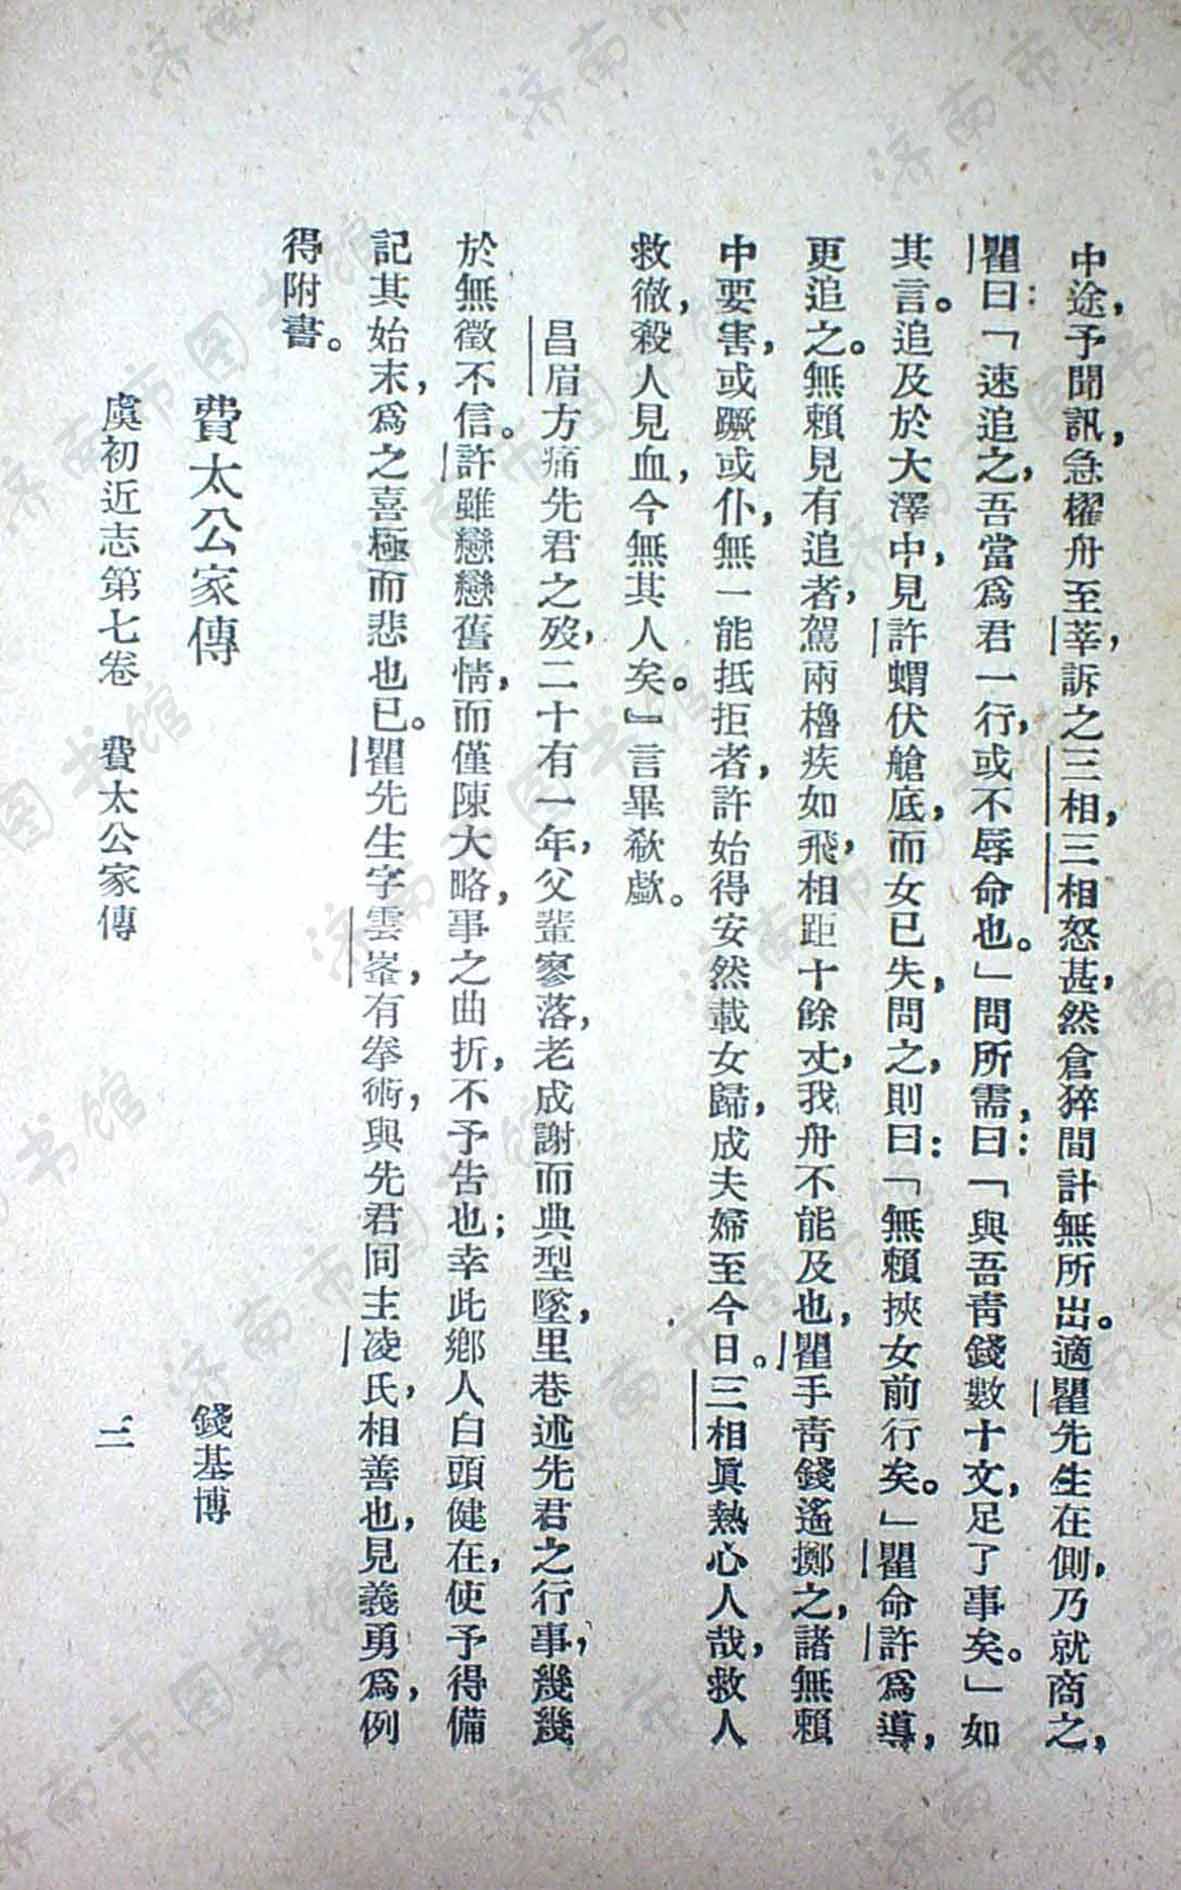 中途，予聞訊，急櫂舟至莘，訴之三相，三相怒甚，然倉猝間計無所出。適瞿先生在側，乃就商之，
瞿曰：「速追之，吾當爲君一行，或不辱命也。」問所需，曰：「與吾靑錢數十文，足了事矣。」如
其言。追及於大澤中，見許蝟伏艙底，而女已失，問之，則曰：「無賴挾女前行矣。」瞿命許爲導，
更追之。無賴見有追者，駕兩櫓疾如飛，相距十餘丈，我舟不能及也，瞿手靑錢遙擲之，諸無賴
中要害，或蹶或仆，無一能抵拒者，許始得安然載女歸，成夫婦至今日。三相眞熱心人哉，救人
救徹，殺人見血，今無其人矣。』言畢欷歔。
昌眉方痛先君之歿，二十有一年，父輩寥落，老成謝而典型墜，里巷述先君之行事，幾幾
於無徵不信。許雖戀戀舊情，而僅陳大略，事之曲折，不予告也；幸此鄕人白頭健在，使予得備
記其始末，爲之喜極而悲也已。瞿先生字雲峯，有拳術，與先君同主凌氏，相善也，見義勇爲，例
得附書。
費太公家傳
錢基博
虞初近志第七卷　費太公家傳
三
濟南市图书馆